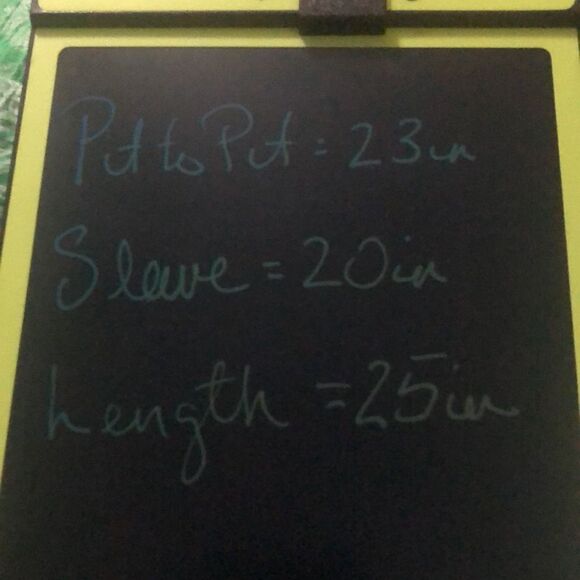 Pit to Pit = 23in
Sleeve = 20in
Length = 25in